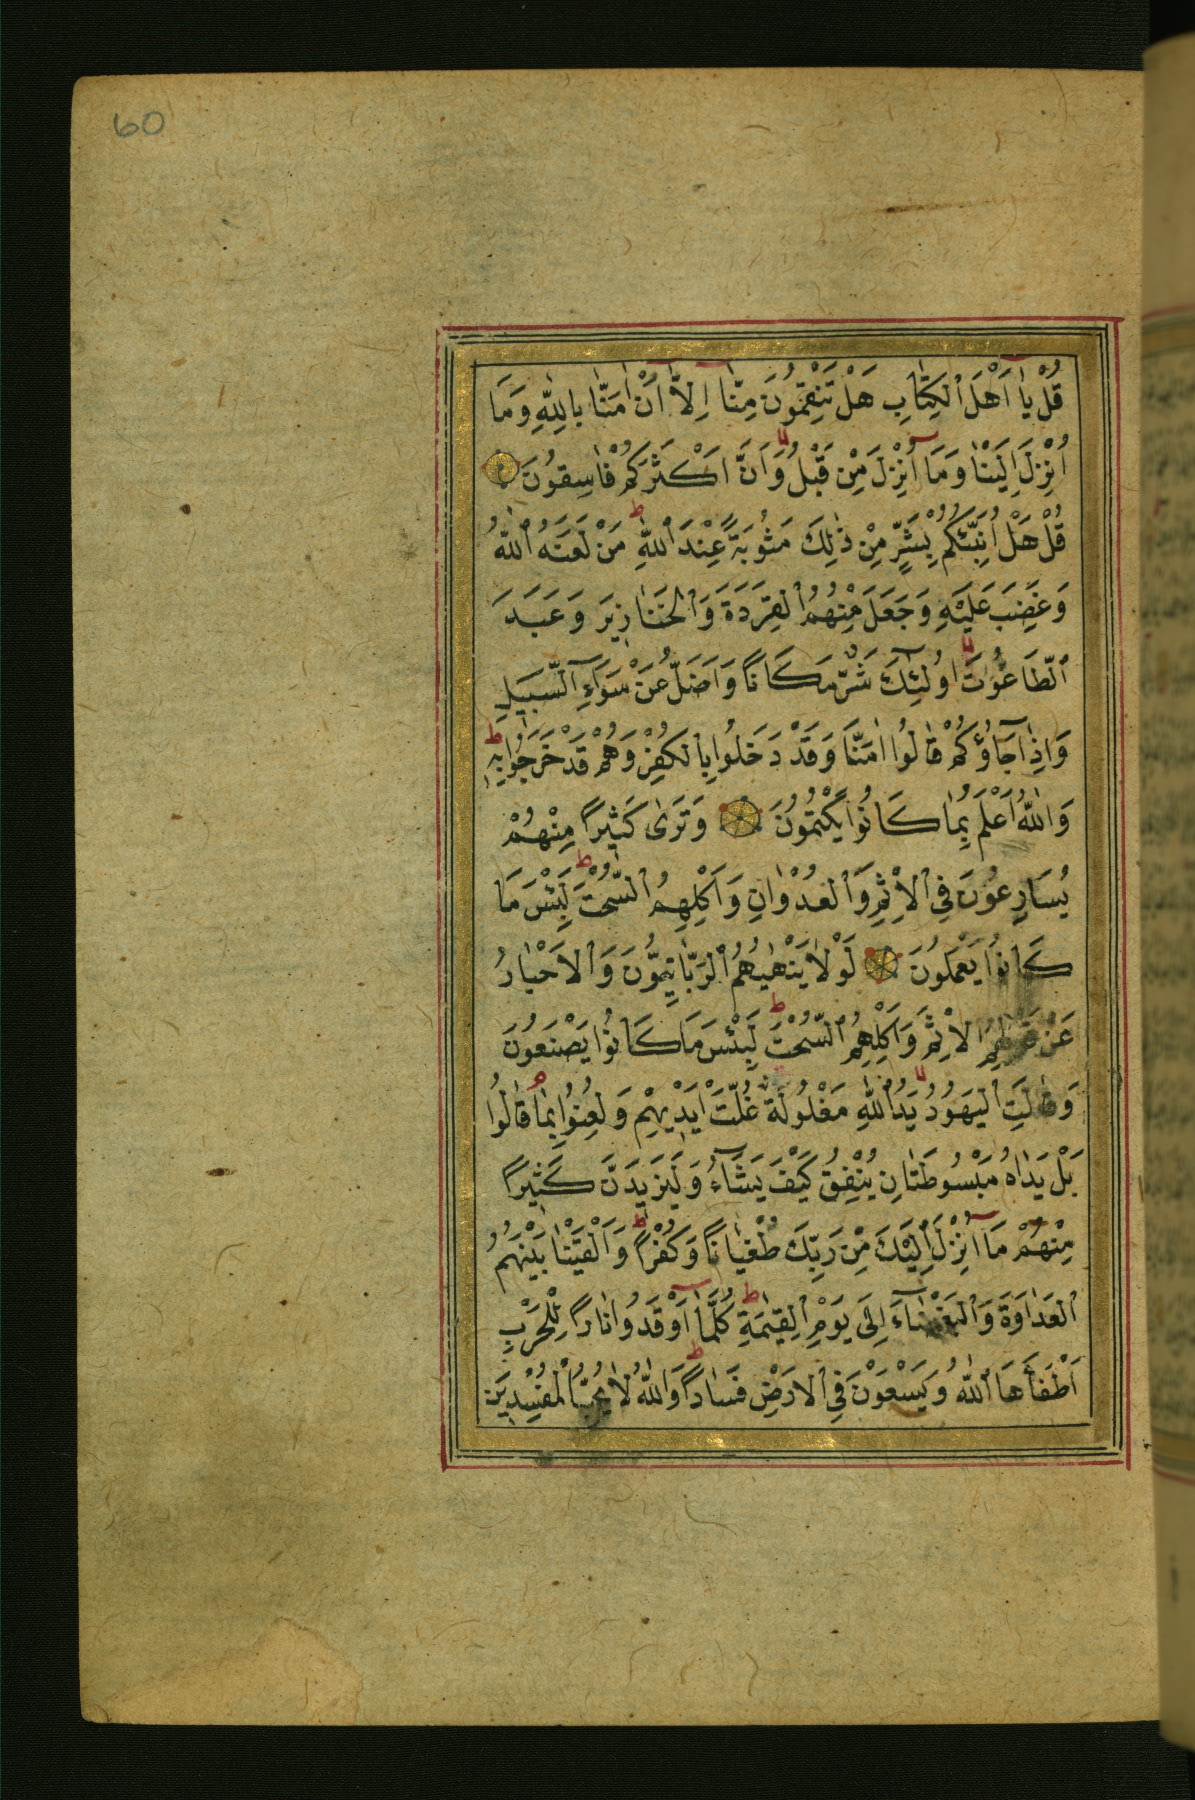 60
قُلْ يَا اَهْلَ الْكِتَابِ هَلْ تَنْقِمُونَ مِنَّا اِلَّا اَنْ اٰمَنَّا بِاللّٰهِ وَمَا
اُنْزِلَ اِلَيْنَا وَمَا اُنْزِلَ مِنْ قَبْلُ وَاَنَّ اَكْثَرَكُمْ فَاسِقُونَ
قُلْ هَلْ اُنَبِّئُكُمْ بِشَرٍّ مِنْ ذٰلِكَ مَثُوبَةً عِنْدَ اللّٰهِ ط مَنْ لَعَنَهُ اللّٰهُ
وَغَضِبَ عَلَيْهِ وَجَعَلَ مِنْهُمُ الْقِرَدَةَ وَالْخَنَازِيرَ وَعَبَدَ
الطَّاغُوتَ اُولٰئِكَ شَرٌّ مَكَانًا وَاَضَلُّ عَنْ سَوَاءِ السَّبِيلِ
وَاِذَا جَاؤُكُمْ قَالُوا اٰمَنَّا وَقَدْ دَخَلُوا بِالْكُفْرِ وَهُمْ قَدْ خَرَجُوا بِهِ ط
وَاللّٰهُ اَعْلَمُ بِمَا كَانُوا يَكْتُمُونَ وَتَرٰى كَثِيرًا مِنْهُمْ
يُسَارِعُونَ فِي الْاِثْمِ وَالْعُدْوَانِ وَاَكْلِهِمُ السُّحْتَ ط لَبِئْسَ مَا
كَانُوا يَعْمَلُونَ لَوْلَا يَنْهٰيهُمُ الرَّبَّانِيُّونَ وَالْاَحْبَارُ
عَنْ قَوْلِهِمُ الْاِثْمَ وَاَكْلِهِمُ السُّحْتَ ط لَبِئْسَ مَا كَانُوا يَصْنَعُونَ
وَقَالَتِ الْيَهُودُ يَدُ اللّٰهِ مَغْلُولَةٌ غُلَّتْ اَيْدِيهِمْ وَلُعِنُوا بِمَا قَالُوا
بَلْ يَدَاهُ مَبْسُوطَتَانِ يُنْفِقُ كَيْفَ يَشَاءُ وَلَيَزِيدَنَّ كَثِيرًا
مِنْهُمْ مَا اُنْزِلَ اِلَيْكَ مِنْ رَبِّكَ طُغْيَانًا وَكُفْرًا ط وَاَلْقَيْنَا بَيْنَهُمُ
الْعَدَاوَةَ وَالْبَغْضَاءَ اِلٰى يَوْمِ الْقِيٰمَةِ ط كُلَّمَا اَوْقَدُوا نَارًا لِلْحَرْبِ
اَطْفَأَهَا اللّٰهُ وَيَسْعَوْنَ فِي الْاَرْضِ فَسَادًا ط وَاللّٰهُ لَا يُحِبُّ الْمُفْسِدِينَ